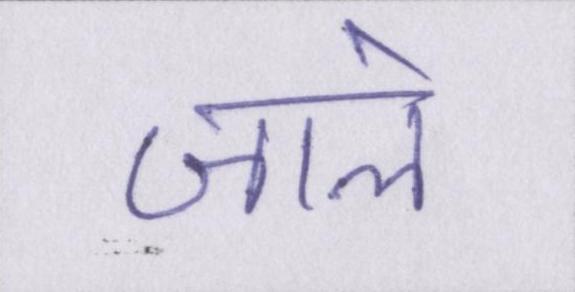 जाले